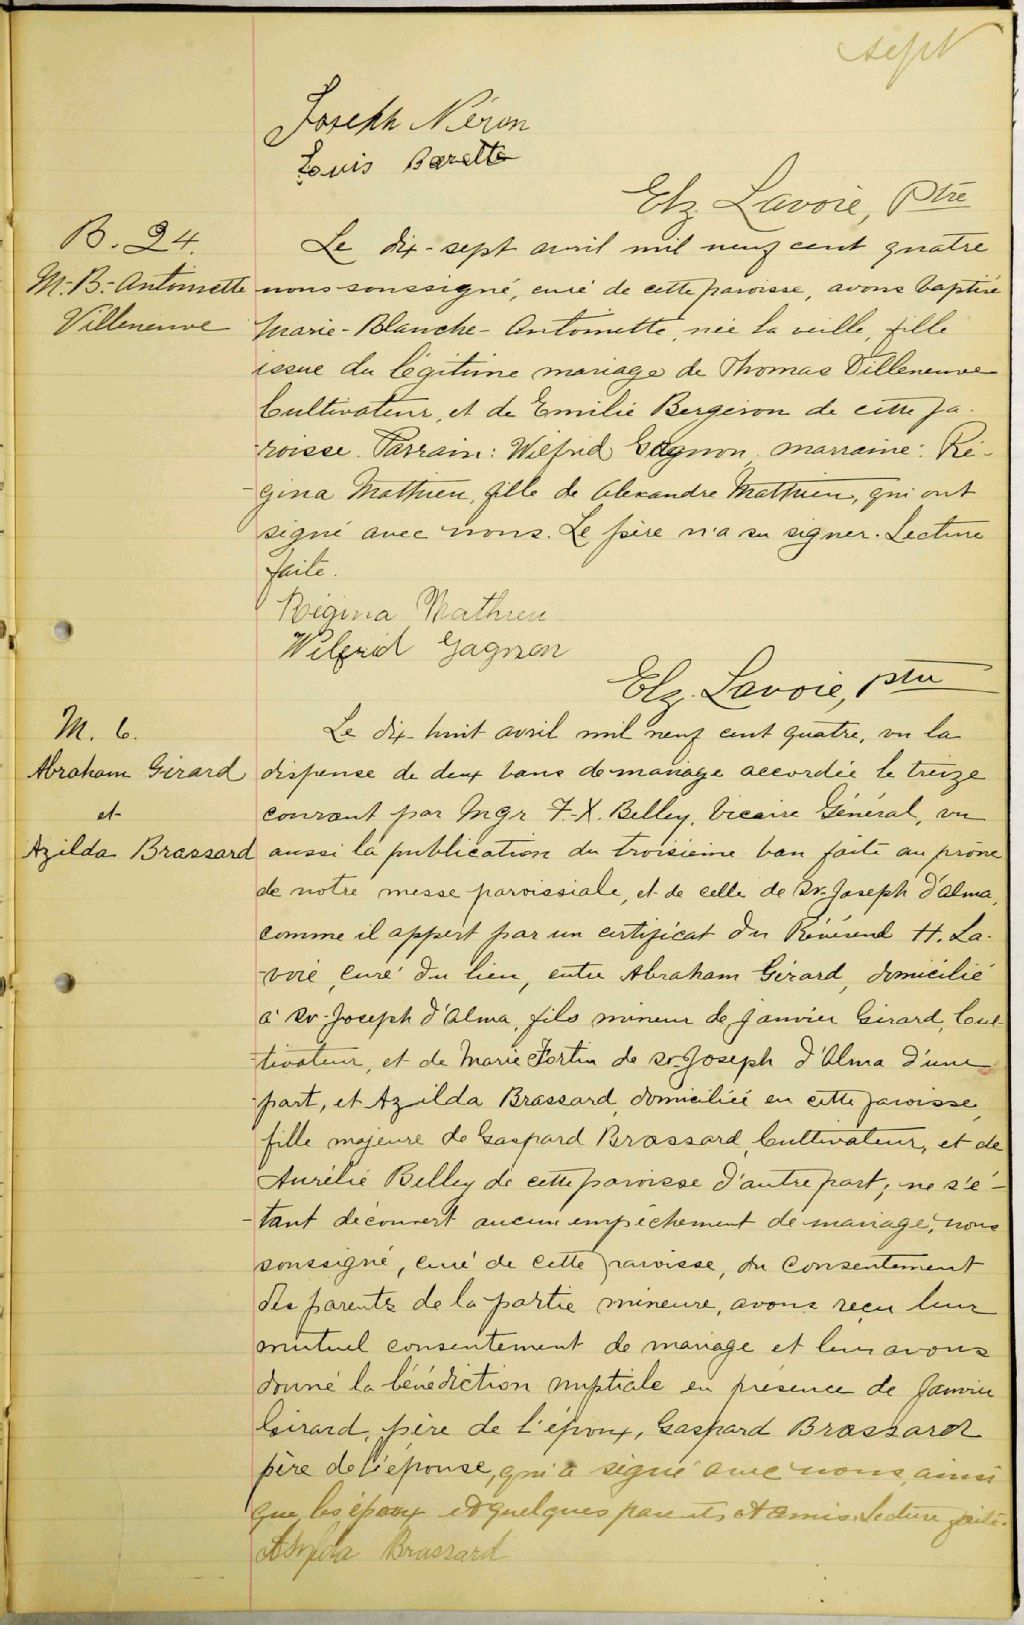 sept
Joseph Néron
Louis Baretto
Elz. Lavoie, Ptre
B. 24.
M.-B.-Antoinette
Villeneuve
Le dix-sept avril mil neuf cent quatre
nous soussigné, curé de cette paroisse, avons baptisé
Marie-Blanche-Antoinette, née la veille, fille
issue du légitime mariage de Thomas Villeneuve
Cultivateur, et de Emilie Bergeron de cette pa-
-roisse. Parrain: Wilfrid Gagnon, marraine: Ré-
-gina Mathieu, fille de Alexandre Mathieu, qui ont
signé avec nous. Le père n'a su signer. Lecture
faite.
Régina Mathieu
Wilfrid Gagnon
Elz. Lavoie, ptre
M. 6.
Abraham Girard
et
Azilda Brassard
Le dix-huit avril mil neuf cent quatre, vu la
dispense de deux bans de mariage accordée le treize
courant par Mgr F.-X. Belley, Vicaire Général, vu
aussi la publication du troisième ban faite au prône
de notre messe paroissiale, et de celle de St-Joseph d'Alma,
comme il appert par un certificat du Révérend H. La-
-voie, curé du lieu, entre Abraham Girard, domicilié
à St-Joseph d'Alma, fils mineur de Janvier Girard, Cul-
-tivateur, et de Marie Fortin de St-Joseph d'Alma d'une
part, et Azilda Brassard, domiciliée en cette paroisse,
fille majeure de Gaspard Brassard, Cultivateur, et de
Aurélie Belley de cette paroisse d'autre part; ne s'é-
-tant découvert aucun empêchement de mariage, nous
soussigné, curé de cette paroisse, du consentement
des parents de la partie mineure, avons reçu leur
mutuel consentement de mariage et leur avons
donné la bénédiction nuptiale en présence de Janvier
Girard, père de l'époux, Gaspard Brassard
père de l'épouse, qui a signé avec nous, ainsi
que les époux et quelques parents et amis. Lecture faite.
Azilda Brassard